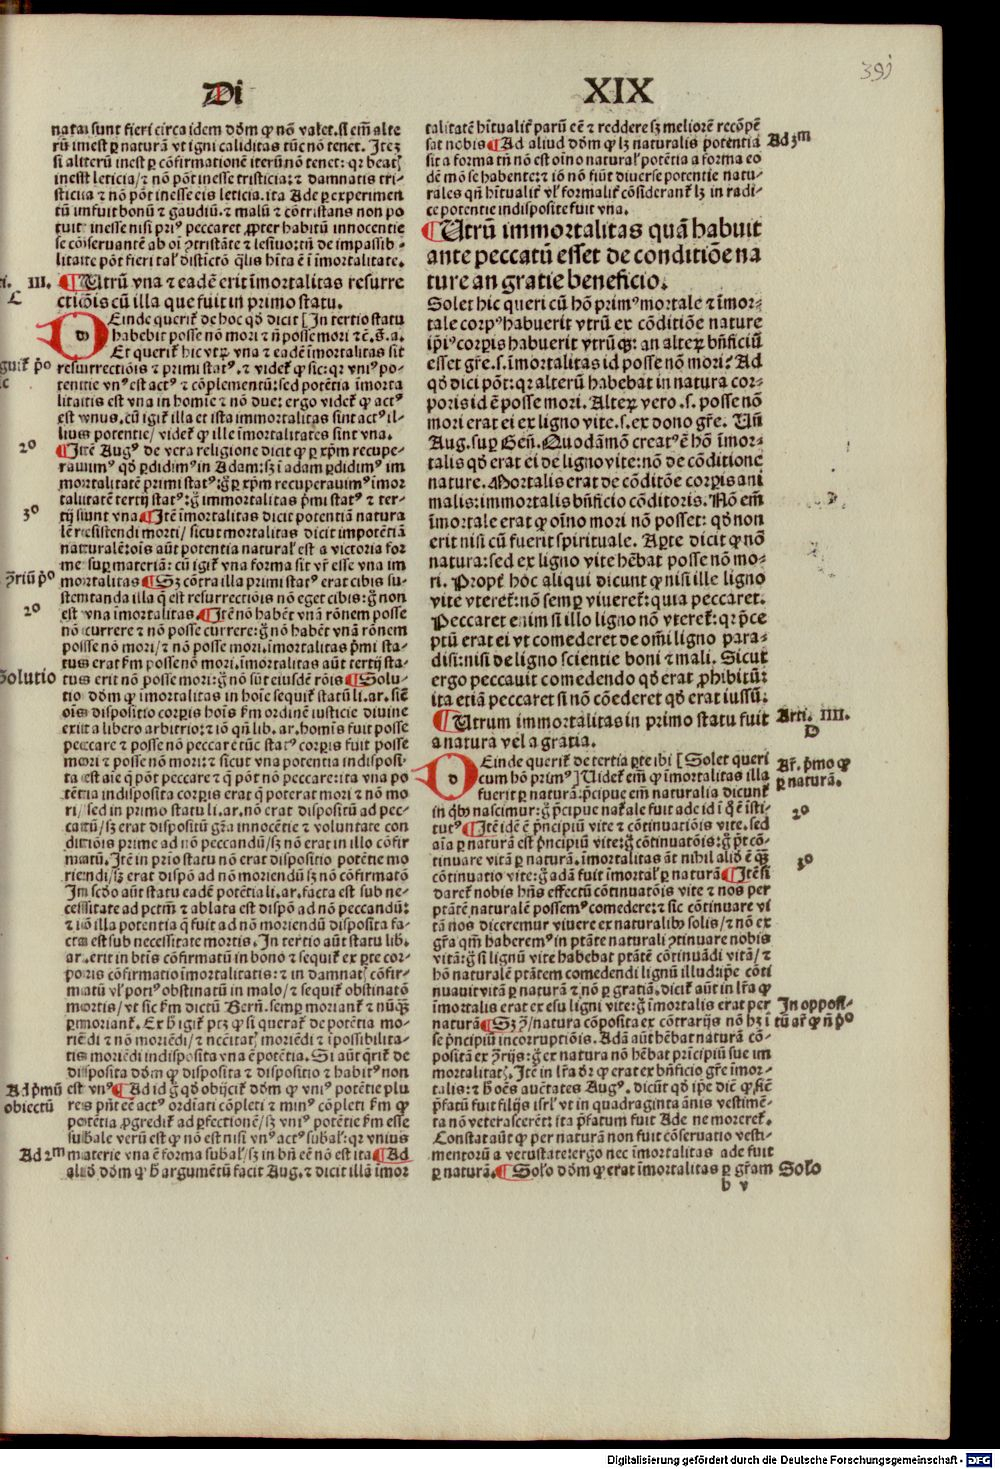 391
Di XIX
nata sunt fieri circa idem dōm ꝙ nō valet. si em̄ alte
rū inest ꝑ naturā vt igni caliditas tūc nō tenet. Itez
si alterū inest ꝑ cōfirmationē iterū nō tenet: qꝛ beatꝭ
inest leticia/ ⁊ nō pōt inesse tristicia: ⁊ damnatis tri-
sticia ⁊ nō pōt inesse eis leticia. ita Ade ꝑ experimen
tū infuit bonū ⁊ gaudiū. ⁊ malū ⁊ cōtristans non po
tuit inesse nisi priꝰ peccaret ꝓpter habitū innocentie
se cōseruantē ab oī ꝯtristāte ⁊ lesiuo: tn̄ de impassib-
litate pōt fieri tal̓ distictō q̄lis hīta ē ī īmortalitate.
III.
C
¶ Utrū vna ⁊ eadē erit īmortalitas resurre
ctiōis cū illa que fuit in primo statu.
DEinde querit᷑ de hoc qd̄ dicit [In tertio statu
habebit posse nō mori ⁊ n̄ posse mori ⁊ꝯ̄. ꝗ̄. a.
Et querit᷑ hic vtꝝ vna ⁊ eadē īmortalitas sit
resurrectiōis ⁊ primi statꝰ. ⁊ videt᷑ ꝙ sic: qꝛ vniꝰ po-
tentie vnꝰ est actꝰ ⁊ cōplementū: sed potētia īmorta
litatis est vna in homīe ⁊ nō due: ergo videt᷑ ꝙ actꝰ
est vnus. cū igit᷑ illa et ista immortalitas sint actꝰ il-
lius potentie/ videt᷑ ꝙ ille īmortalitates sint vna.
2°
¶ Itē Augꝰ de vera religione dicit ꝙ ꝑ xp̄m recupe-
rauimꝰ qd̄ ꝑdidimꝰ in Adam: sꝫ ī adam ꝑdidimꝰ im
mortalitatē primi statꝰ: g̊ ꝑ xp̄m recuperauimꝰ īmor
talitatē tertij statꝰ: g̊ immortalitas p̄mi statꝰ ⁊ ter-
3°
tij sunt vna ¶ Itē īmortalitas dicit potentiā natura
lē resistendi morti/ sicut mortalitas dicit impotētiā
naturalē: oīs aūt potentia natural̓ est a victoria for
me sup̄ materiā: cū igit᷑ vna forma sit vr̄ esse vna im
ꝯ̄riū p̄°
mortalitas ¶ Sꝫ cōtra illa primi statꝰ erat cibis su-
stentanda illa q̄ est resurrectiōis nō eget cibis: g̊ non
2°
est vna īmortalitas. ¶ Itē nō habēt vnā rōnem posse
nō currere ⁊ nō posse currere: g̊ nō habēt vnā rōnem
posse nō mori/ ⁊ nō posse mori. īmortalitas p̄mi sta-
tus erat ẜm posse nō mori. īmortalitas aūt tertij sta-
Solutio
tus erit nō posse mori: g̊ nō sūt eiusdē rōis ¶ Solu-
tio dōm ꝙ īmortalitas in hoīe sequit᷑ statū li. ar. sicē
oīs dispositio corꝑis hoīs ẜm ordinē iusticie diuine
exiit a libero arbitrio: ⁊ iō qn̄ lib. ar. homīs fuit posse
peccare ⁊ posse nō peccare tūc statꝰ corꝑis fuit posse
mori ⁊ posse nō mori: ⁊ sicut vna potentia indisposi-
ta est aīe q̄ pōt peccare ⁊ q̄ pōt nō peccare: ita vna po
tētia indisposita corꝑis erat q̄ poterat mori ⁊ nō mo
ri/ sed in primo statu li. ar. nō erat dispositū ad pec-
catū/ sꝫ erat dispositū gr̄a innocētie ⁊ voluntate con
ditiōis prime ad nō peccandū/ sꝫ nō erat in illo cōfir
matū. Itē in prio statu nō erat dispositio potētie mo
riendi/ sꝫ erat dispō ad nō moriendū sꝫ nō cōfirmatō
In scd̄o aūt statu eadē potētia li. ar. facta est sub ne-
cessitate ad pctm̄ ⁊ ablata est dispō ad nō peccandū:
⁊ iō illa potentia q̄ fuit ad nō moriendū disposita fa-
cta est sub necessitate mortis. In tertio aūt statu lib.
ar. erit in btīs cōfirmatū in bono ⁊ sequit᷑ ex ꝑte cor-
poris cōfirmatio īmortalitatis: ⁊ in damnatꝭ cōfir-
matū vl̓ potiꝰ obstinatū in malo/ ⁊ sequit᷑ obstinatō
mortis/ vt sic ẜm dictū Bern̄. semꝑ moriant᷑ ⁊ nūqꝫ
ꝑmoriant᷑. Ex h̄ igit᷑ ptꝫ ꝙ si querat᷑ de potētia mo-
riēdi ⁊ nō moriēdi/ ⁊ ncc̄itatꝭ moriēdi ⁊ ipossibilita-
tis moriēdi indisposita vna ē potētia. Si aūt q̄rit᷑ de
disposita dōm ꝙ disposita ⁊ dispositio ⁊ habitꝰ non
Ad p̄mū
obiectū
est vnꝰ ¶ Ad id g̊ qd̄ obijcit᷑ dōm ꝙ vniꝰ potētie plu
res pn̄t eē actꝰ ordīati cōpleti ⁊ minꝰ cōpleti ẜm ꝙ
potētia ꝓgredit᷑ ad ꝑfectionē/ sꝫ vniꝰ potētie ẜm esse
subale verū est ꝙ nō est nisi vnꝰ actꝰ subal̓: qꝛ vnius
Ad 2m
materie vna ē forma subal̓/ sꝫ in bn̄ eē nō est ita ¶ Ad
aliud dōm ꝙ h̄ argumētū facit Aug. ⁊ dicit illā īmor
talitatē hītualit᷑ parū eē ⁊ reddere sꝫ meliorē recōpē
Ad 3m
sat nobis ¶ Ad aliud dōm ꝙ lꝫ naturalis potentia
sit a forma tn̄ nō est oīno natural̓ potētia a forma eo
dē mō se habente: ⁊ iō nō fiūt diuerse potentie natu-
rales qn̄ hītualit᷑ vl̓ formalit᷑ cōsiderant᷑ lꝫ in radi-
ce potentie indisposite fuit vna.
¶ Utrū immortalitas quā habuit
ante peccatū esset de conditiōe na
ture an gratie beneficio.
Solet hic queri cū hō primꝰ mortale ⁊ īmor-
tale corpꝰ habuerit vtrū ex cōditiōe nature
ip̄iꝰ corꝑis habuerit vtrūqꝫ: an alteꝝ bn̄ficiū
esset gr̄e. s. īmortalitas id posse nō mori? Ad
qd̄ dici pōt: qꝛ alterū habebat in natura cor-
poris id ē posse mori. Alteꝝ vero .s. posse nō
mori erat ei ex ligno vite .s. ex dono gr̄e. Un̄
Aug. suꝑ Gen̄. Quodāmō creatꝰ ē hō īmor-
talis qd̄ erat ei de ligno vite: nō de cōditione
nature. Mortalis erat de cōditōe corꝑis ani
malis: immortalis bn̄ficio cōditoris. Nō em̄
īmortale erat ꝙ oīno mori nō posset: qd̄ non
erit nisi cū fuerit spirituale. Aꝑte dicit ꝙ nō
natura: sed ex ligno vite hēbat posse nō mo-
ri. Propt̓ hoc aliqui dicunt ꝙ nisi ille ligno
vite vteret᷑: nō semꝑ viueret᷑: quia peccaret.
Peccaret enim si illo ligno nō vteret᷑: qꝛ p̄ce
ptū erat ei vt comederet de om̄i ligno para-
disi: nisi de ligno scientie boni ⁊ mali. Sicut
ergo peccauit comedendo qd̄ erat ꝓhibitū:
ita etiā peccaret si nō cōederet qd̄ erat iussū.
Arti. IIII.
D
¶ Utrum immortalitas in primo statu fuit
a natura vel a gratia.
DEinde querit᷑ de tertia ꝑte ibi [Solet queri
Ar̄. p̄mo ꝙ
ꝑ naturā.
cum hō primꝰ] Videt᷑ em̄ ꝙ īmortalitas illa
fuerit ꝑ naturā. p̄cipue em̄ naturalia dicunt᷑
in qbꝰ nascimur: g̊ p̄cipue nat̓ale fuit ade id ī q̊ ē īsti-
2°
tutꝰ ¶ Itē idē ē p̄ncipiū vite ⁊ cōtinuatiōis vite. sed
aīa ꝑ naturā est p̄ncipiū vite: g̊ cōtinuatōis: g̊ p̄t cō-
tinuare vitā ꝑ naturā. īmortalitas āt nihil aliđ ē qꝫ̄
3°
cōtinuatio vite: g̊ adā fuit īmortal̓ ꝑ naturā ¶ Itē si
daret᷑ nobis hn̄s effectū cōtinuatōis vite ⁊ nos per
ptātē naturalē possemꝰ comedere: ⁊ sic cōtinuare vi
tā nos diceremur viuere ex naturalibꝰ solis/ ⁊ nō ex
gr̄a qm̄ haberemꝰ in ptāte naturali ꝯtinuare nobis
vitā: g̊ si lignū vite habebat ptātē cōtinuādi vitā/ ⁊
hō naturalē ptātem comedendi lignū illud: ip̄e cōti
nuauit vitā ꝑ naturā ⁊ nō ꝑ gratiā. dicit᷑ aūt in lr̄a ꝙ
In opposi-
tū ar̄ ꝙ n̄ p̄°
īmortalis erat ex esu ligni vite: g̊ īmortalis erat per
naturā ¶ Sꝫ ꝯ̄/ natura cōposita ex cōtrarijs nō hꝫ ī
se p̄ncipiū incorruptiōis. Adā aūt hēbat naturā cō-
positā ex ꝯ̄rijs: g̊ ex natura nō hēbat p̄ncipiū sue im
mortalitatꝭ. Itē in lr̄a dr̄ ꝙ erat ex bn̄ficio gr̄e īmor-
talis: ⁊ h̄ oēs auc̄tates Augꝰ. dicūt qd̄ ip̄e dic̄ ꝙ sic̄
p̄fatū fuit filijs isrl̓ vt in quadraginta ānis vestimē-
ta nō veterascerēt: ita p̄fatum fuit Ade ne moreret᷑.
Constat aūt ꝙ per naturā non fuit cōseruatio vesti-
mentorū a vetustate: ergo nec īmortalitas ade fuit
Solo
ꝑ naturā. ¶ Solo dōm ꝙ erat īmortalitas ꝑ gr̄am
b v
Digitalisierung gefördert durch die Deutsche Forschungsgemeinschaft - DFG